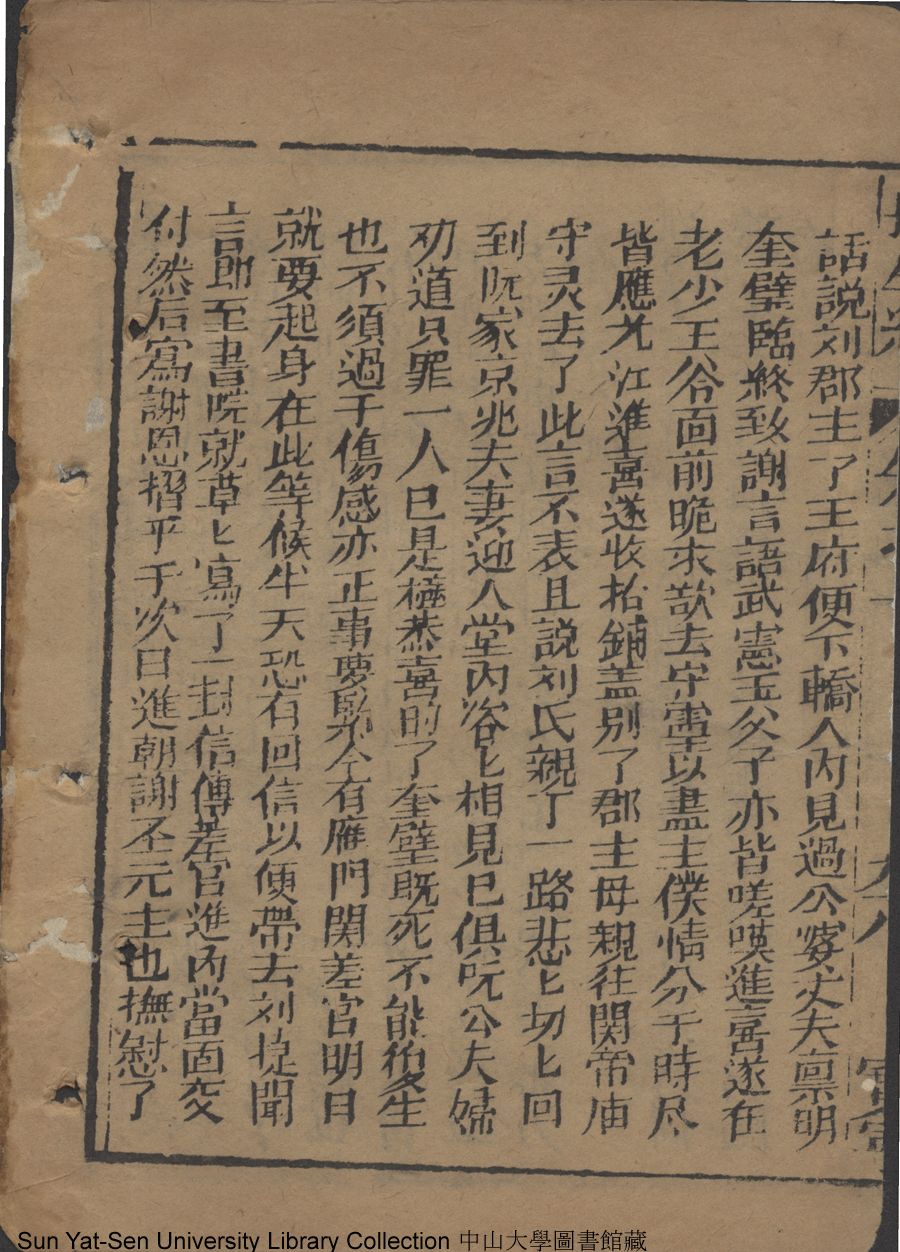 話說刘郡主了王府便下轎人内見過公婆丈夫禀明
奎璧臨終致謝言語武憲王父子亦皆嗟嘆進喜遂在
老少王爷面前跪求欲去守灵以盡主僕情分于時尽
皆應允江進喜遂收拾鋪盖別了郡主母親往関帝庙
守灵去了此言不表且說刘氏親丁一路悲匕切匕回
到阮家京兆夫妻迎人堂内各匕相見已俱阮公夫婦
劝道只罪一人已是㮣恭喜的了奎璧既死不能復生
也不須過于傷感亦正事要緊今有雁門関差官明日
就要起身在此等候半天恐有回信以便帶去刘捷聞
言即至書院就草匕寫了一封信傳差官進内當面交
付然后寫謝恩摺平于次日進朝謝丕元主也撫慰了
Sun Yat-Sen University Library Collection 中山大學圖書館藏